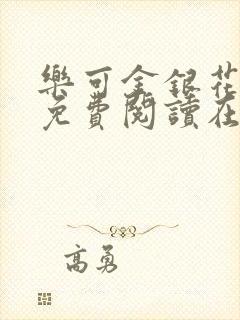 樂可金銀花
免費閱讀在
高勇